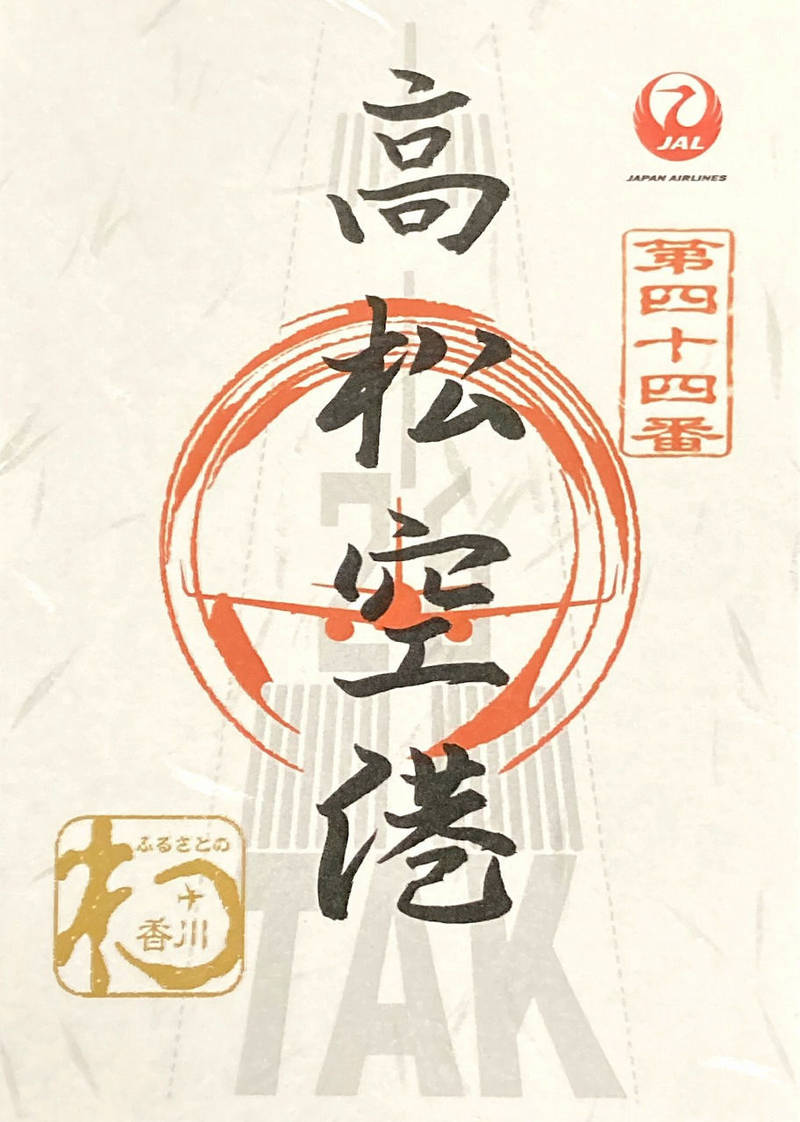 JAL
JAPAN AIRLINES
第四十四番
高松空港
26
TAK
ふるさとの
わ
香川